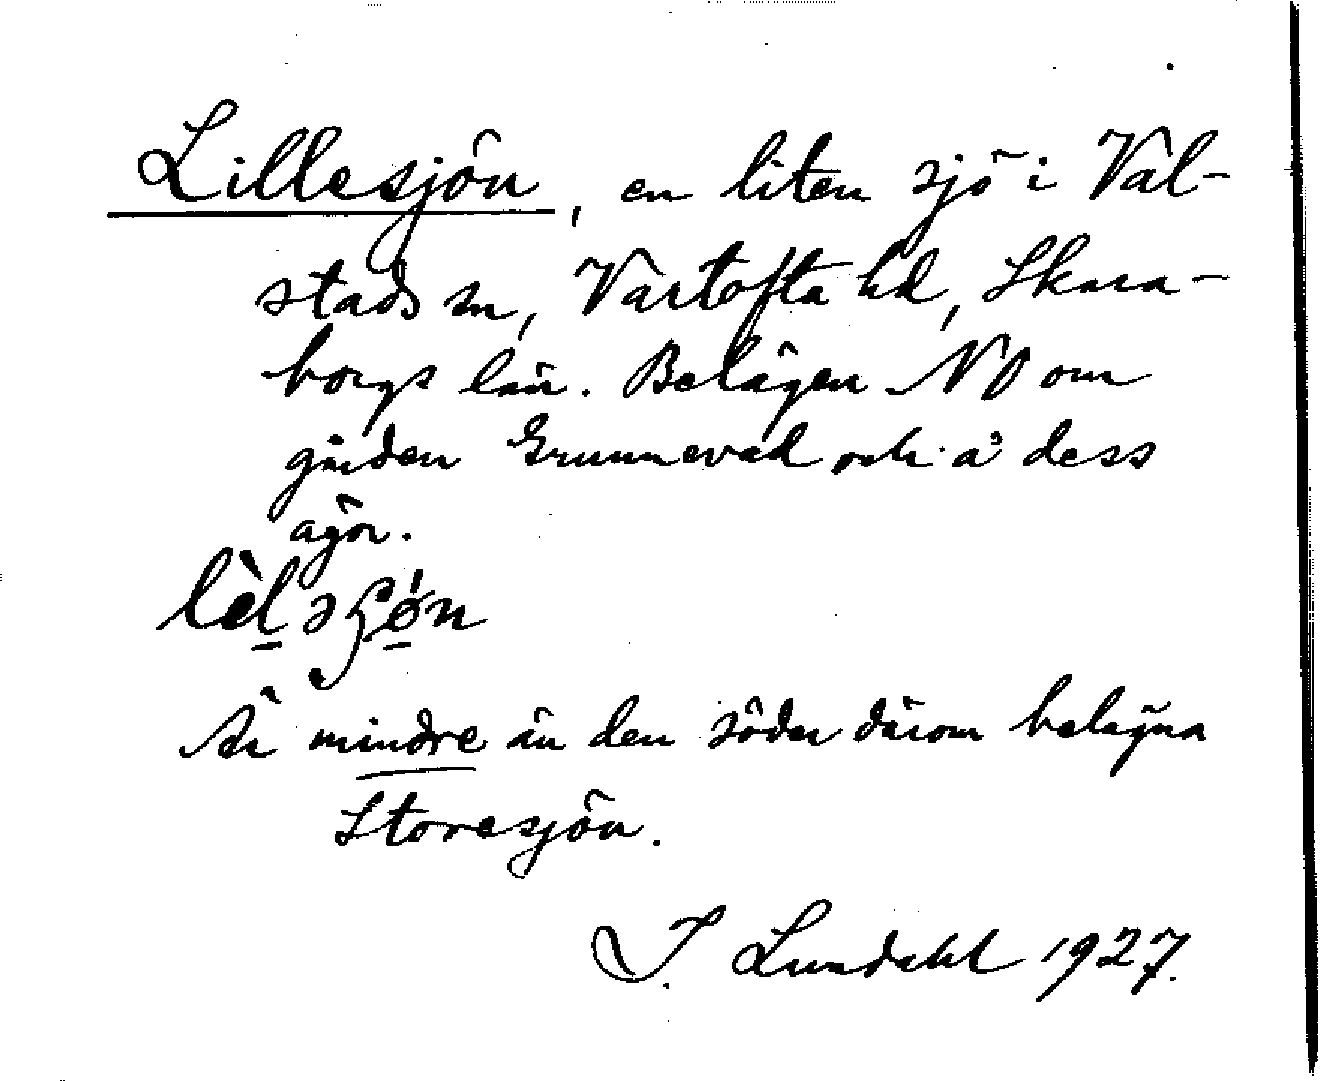 Lillesjön, en liten sjö i Val-
stads sn, Vartofta hd, Skara-
borgs län. Belägen NV om
gården Grunnevad och å dess
ägor.
lèləʂø̀n
Är mindre än den söder därom belägna
Storesjön.
I. Lundahl 1927.